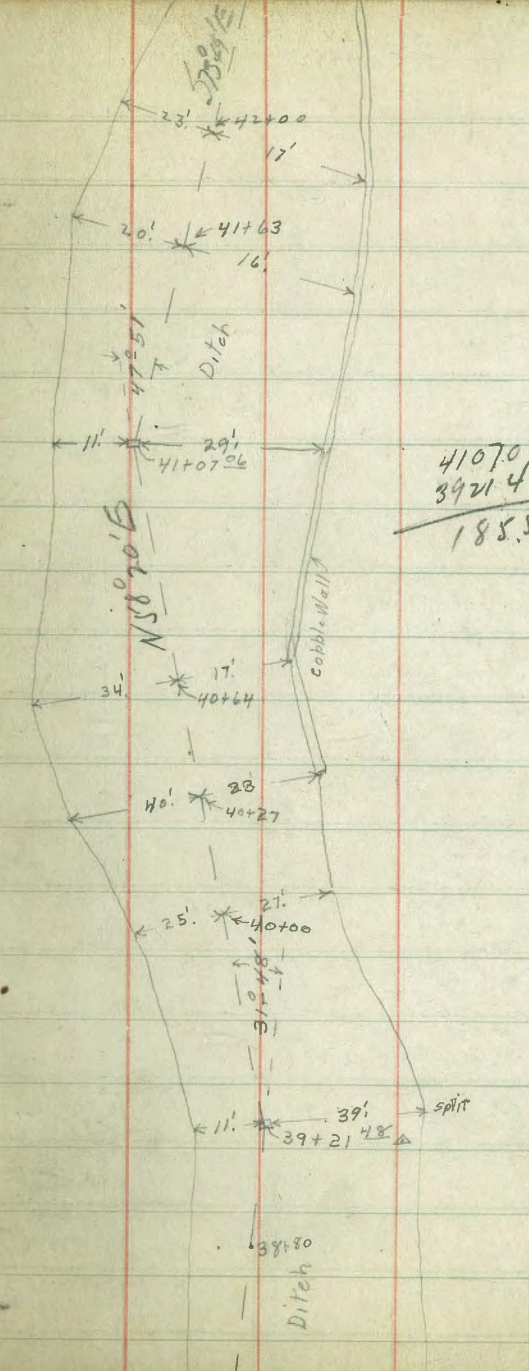 23' 42+00
17'
20' 41+63
16'
47°51'
Ditch
11' 29'
41+07 06
41070
39214
185.5
N58°20'E
Cobble Wall
34' 17'
40+64
40' 28
40+27
27'
25' 40+00
31°48'
11' 39' split
39+21 48
38+80
Ditch